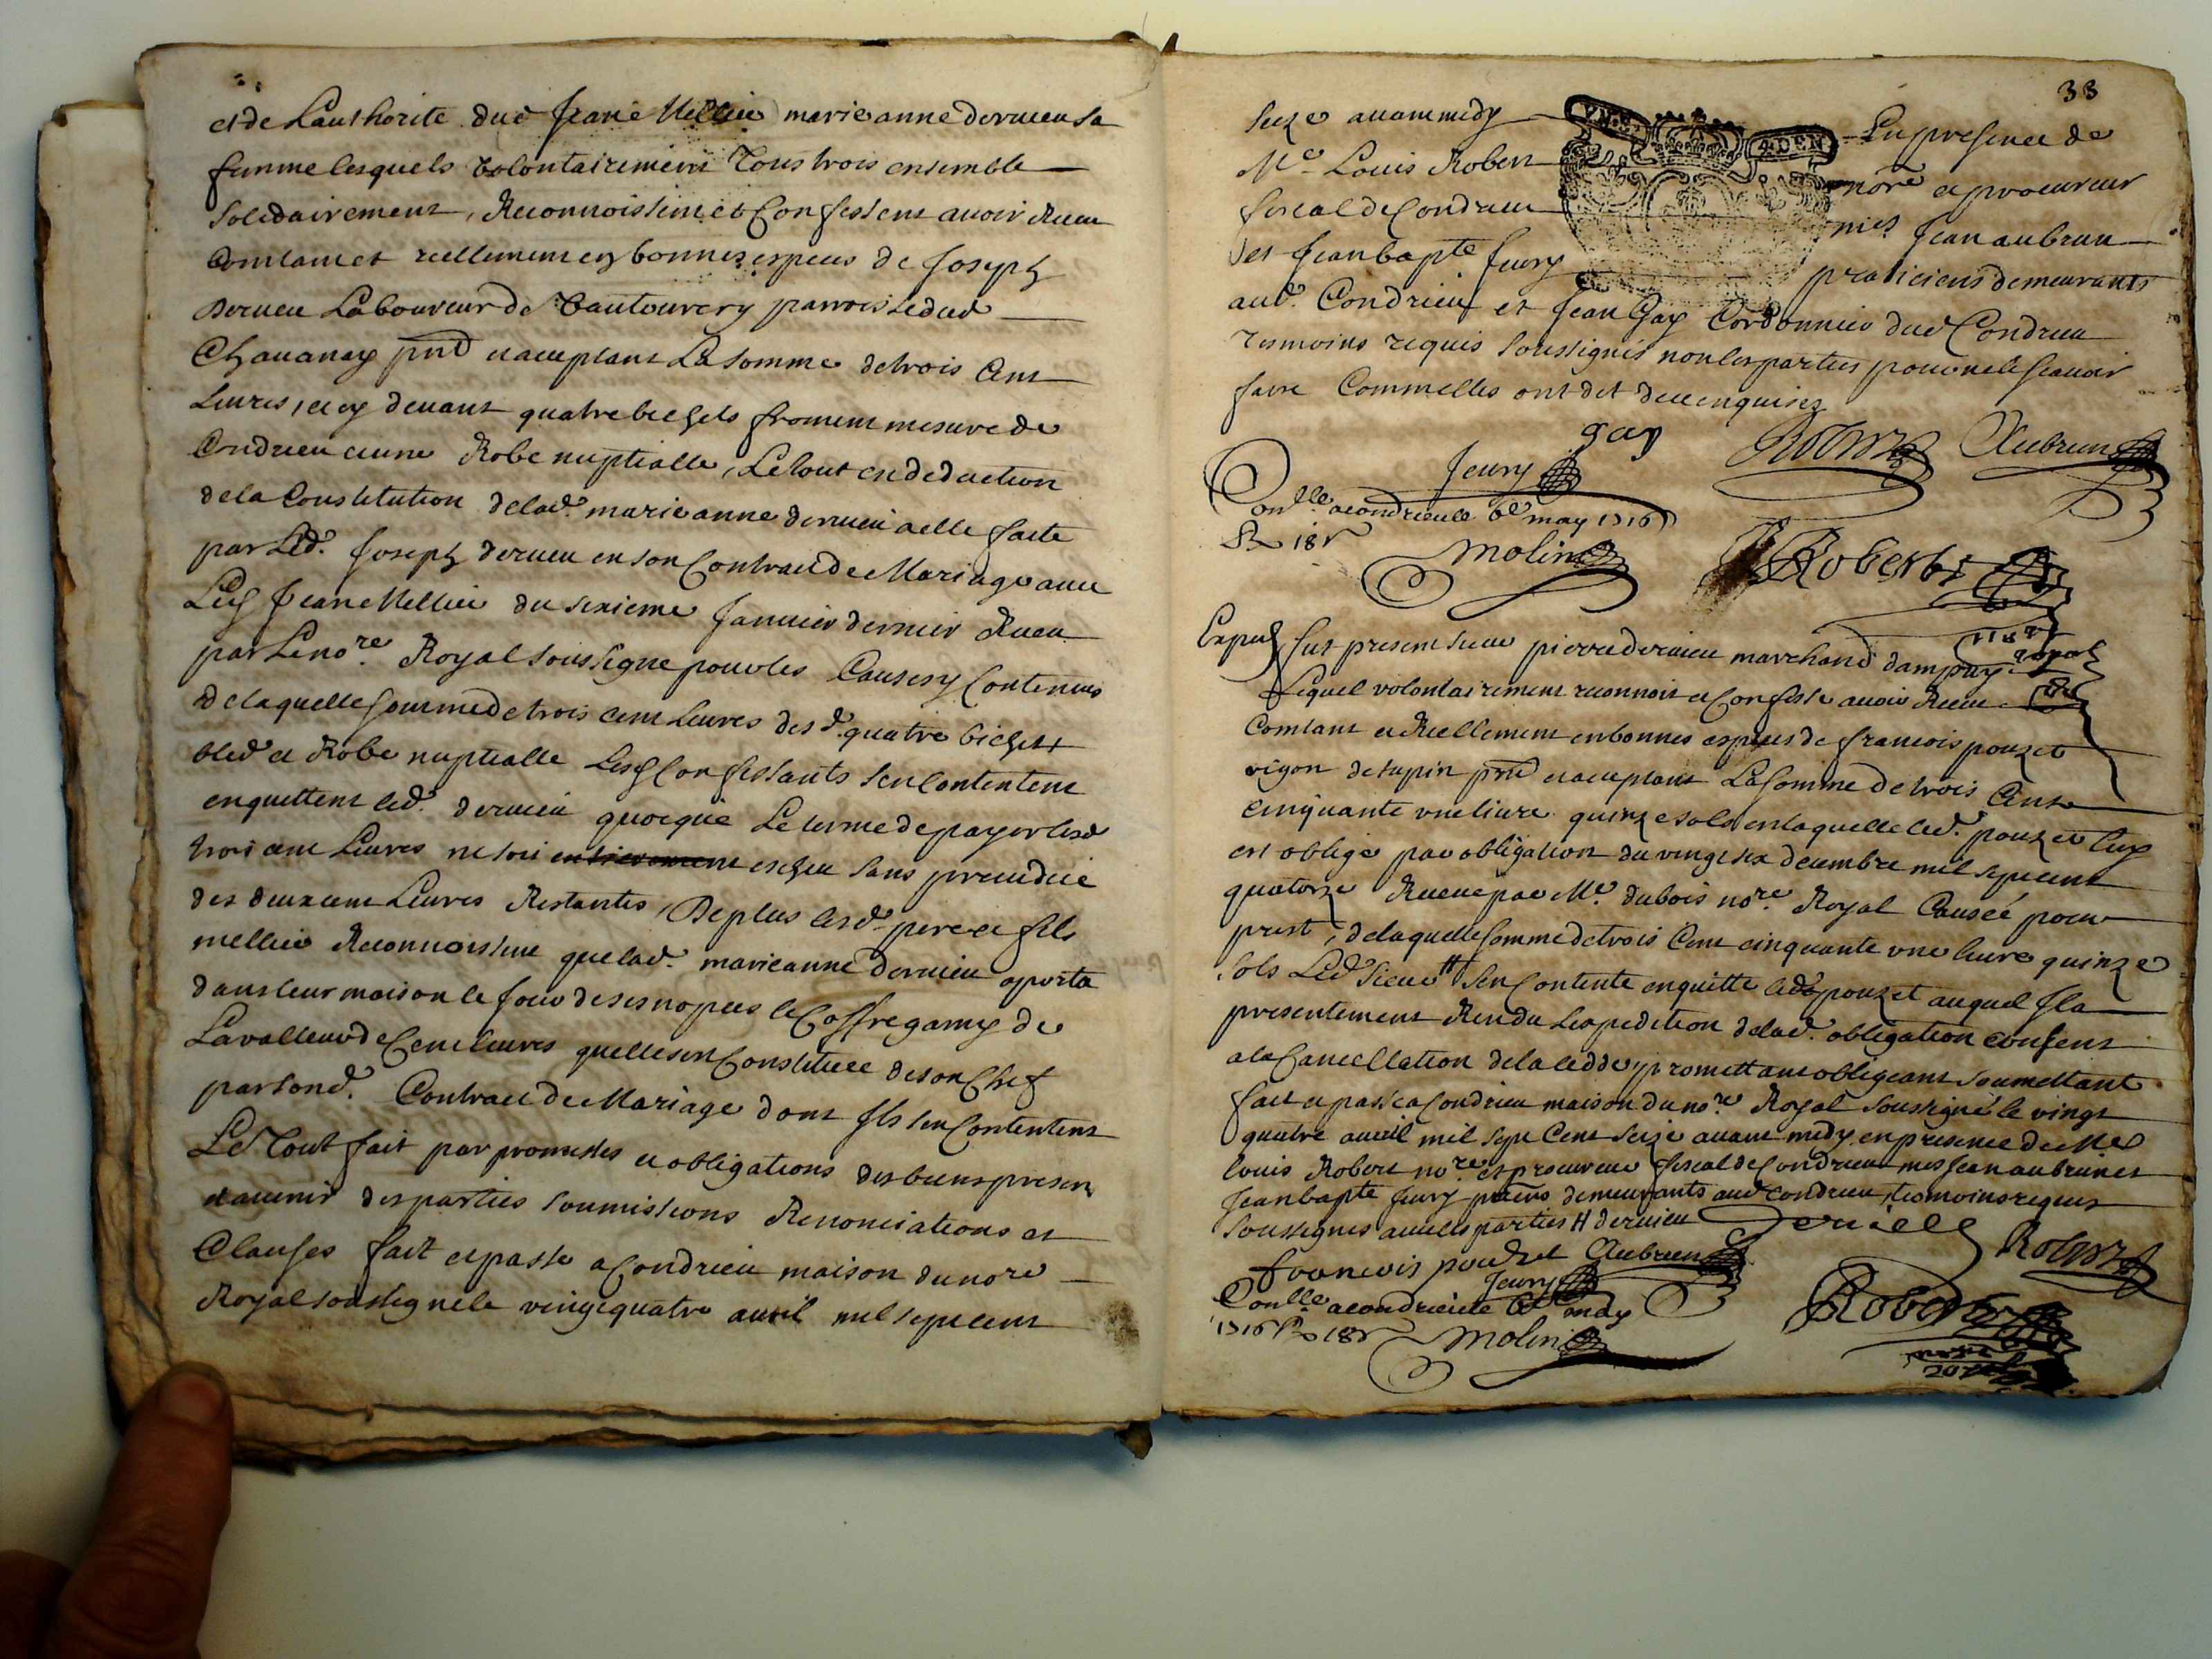 et de Lauthorite dud Jean Mellier marie anne dervieu sa
femme lesquels volontairement Tous trois ensemble
solidairement, Reconnoissent et Confessent auoir Receu
Comtant et reellement en bonnes especes de Joseph
Dervieu Laboureur de Vautourery parroisse dud
Chauanay pnt et aceptant La somme de trois Cent
Liures, et cy deuant quatre bichets froment mesure de
Condrieu et une Robe nuptialle, Le tout en deduction
de la Constitution de lad. marie anne dervieu a elle faite
par Led. Joseph dervieu en son Contract de Mariage auec
Led Jean Mellier du sixieme Januier dernier Receu
par Le nore. Royal soussigne pour les Causes y Contenues
de laquelle somme de trois cent Liures desd. quatre bichets
bled et Robe nuptialle Lesd Confessants sen Contentent
en quittent led. dervieu quoique Le terme de payer lesd
trois cent Liures ne soit entierement escheu sans preiudice
des deux cent Liures Restantes, De plus lesd. pere et fils
mellier Reconnoissent que lad. marie anne dervieu aporta
dans leur maison le jour de ses nopces le Coffre garny de
La valleur de Cent liures quelle sen Constituee de son Chef
par sond. Contract de Mariage dont Ils sen Contentent
Le Tout fait par promesses et obligations des biens presen
et auenir des parties soumissions Renonciations et
Clauses fait et passe a Condrieu maison du nore
Royal soussigne le vingt quatre auril mil sept cent
33
seize auant midy En presence de
Me Louis Robert nore et procureur
fiscal de Condrieu mes Jean aubrun
et Jean bapte Jeury praticiens demeurants
aud. Condrieu et Jean Gay Cordonnier dud Condrieu
Tesmoins requis soussignés non les parties pour ne le scauoir
faire Comme elles ont dit de ce enquises
gay
Jeury Robert Aubrun
Conlle a condrieu le 6e may 1716
R 18s
Molin Robert
Expe fut present sieur pierre dervieu marchand dampuy
Lequel volontairement reconnoit et Confesse auoir Receu
Comtant et Reellement en bonnes especes de francois pouzet
vigon de tupin pnt et aceptant La somme de trois Cents
Cinquante vne liure quinze sols en laquelle led. pouzet luy
est obligé par obligation du vingt six decembre mil sept cent
quatorze Receue par Me. dubois nore. Royal Causée pour
prest, de laquelle somme de trois Cent cinquante vne liure quinze
sols Led Sieur H sen Contente en quitte led pouzet auquel Il a
presentement Rendu Lexpedition de lad. obligation consent
a la Cancellation de la cedde, promettant obligeant soumettant
fait et passé a Condrieu maison du nore Royal soussigné le vingt
quatre auril mil sept Cent seize auant midy en presence de Me
louis Robert nore. et procureur fiscal de Condrieu mes Jean aubrun et
Jean bapte Jeury praens demeurants aud condrieu, tesmoins requis
soussignes auec les parties H dervieu
Dervieu
francois pouzet Aubrun Robert
Jeury
Conlle a condrieu le may
1716 R 18s Molin Robert